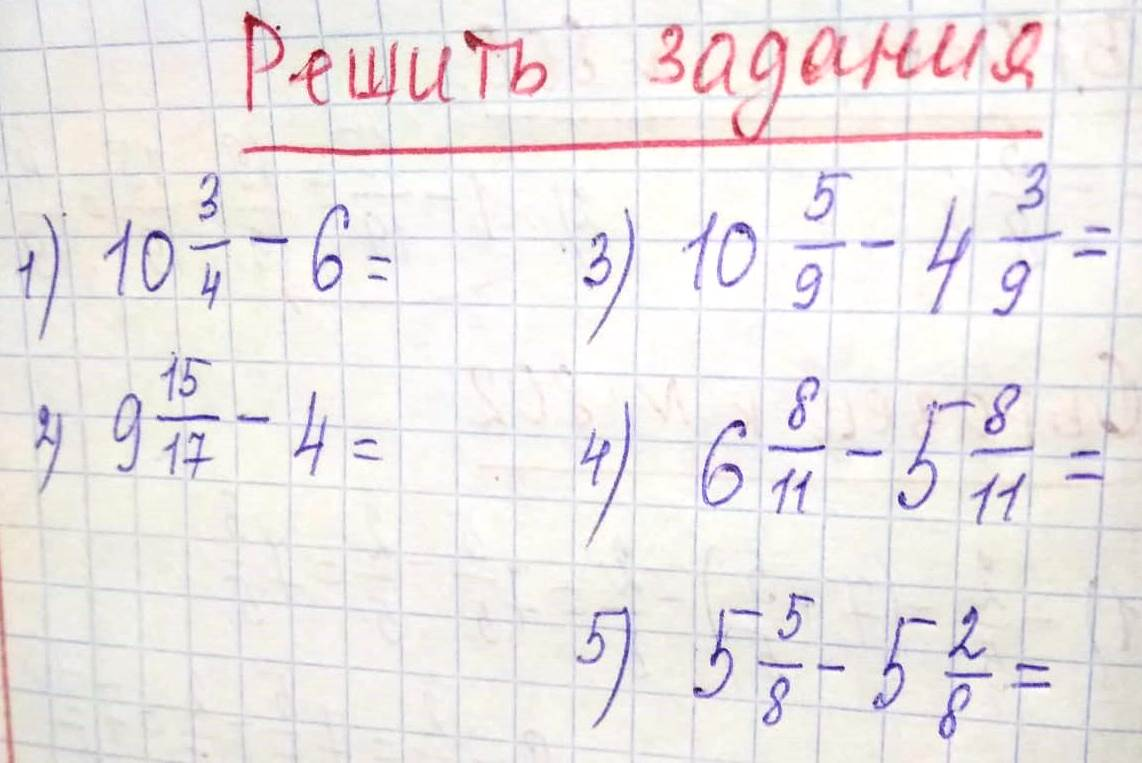 Решить задания
1) 10 3/4 - 6 =
2) 9 15/17 - 4 =
3) 10 5/9 - 4 3/9 =
4) 6 8/11 - 5 8/11 =
5) 5 5/8 - 5 2/8 =